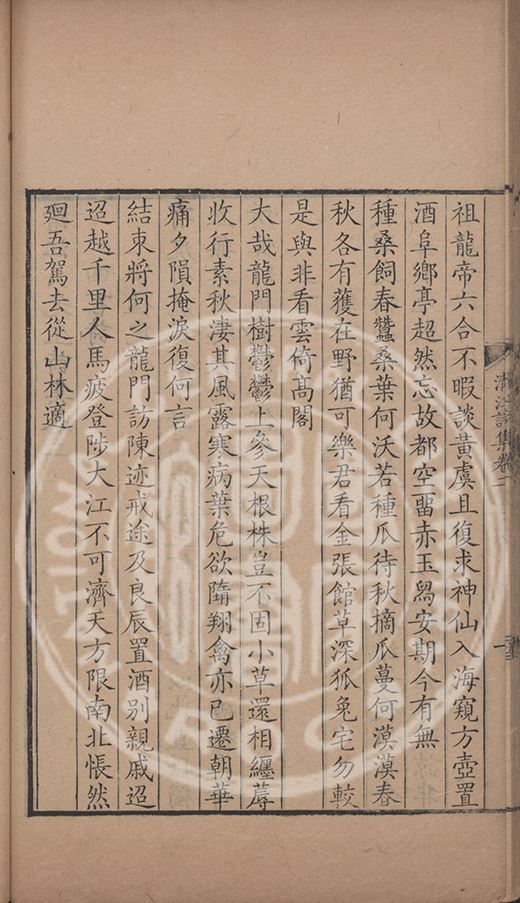 祖龍帝六合不暇談黃虞且復求神仙入海窺方壺置
酒阜鄉亭超然忘故都空畱赤玉舄安期今有無
種桑飼春蠶桑葉何沃若種瓜待秋摘瓜蔓何漠漠春
秋各有穫在野猶可樂君看金張館草深狐兔宅勿較
是與非看雲倚高閣
大哉龍門樹鬱鬱上參天根株豈不固小草還相纏蓐
收行素秋淒其風露寒病葉危欲隋翔禽亦已遷朝華
痛夕隕掩淚復何言
結束將何之龍門訪陳迹戒途及良辰置酒別親戚迢
迢越千里人馬疲登陟大江不可濟天方限南北悵然
廻吾駕去從山林適
清江詩集卷二